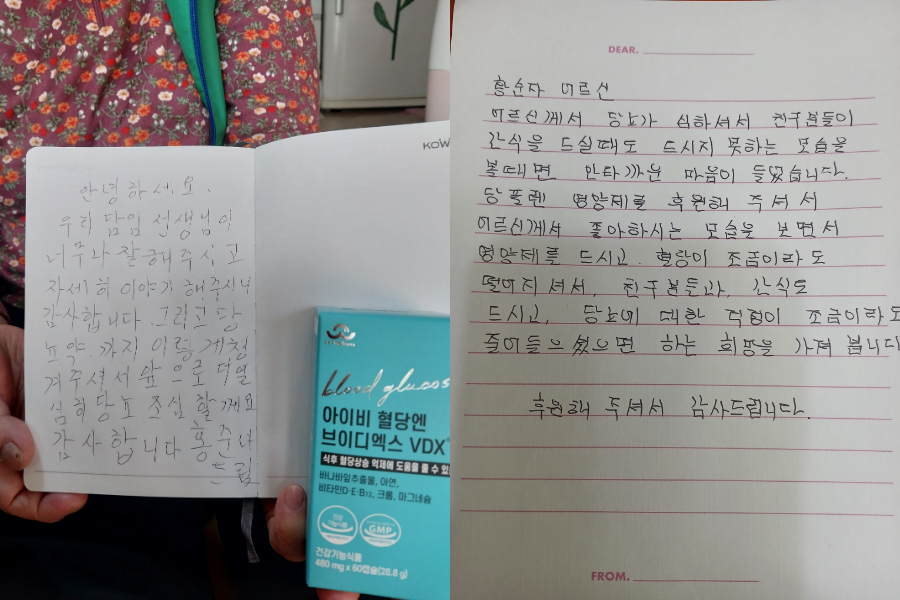 안녕하세요.
우리 담임 선생님이
너무나 잘해주시고
자세히 이야기 해주시니
감사합니다 그리고 당
뇨약 까지 이렇게 챙
겨주셔서 앞으로 더열
심히 당뇨 조심 할께요
감사합니다 홍준
드림
KOW
blood glucos
아이비 혈당엔
브이디엑스 VDX
식후 혈당상승 억제에 도움을 줄 수 있
바나바잎추출물, 아연,
비타민D·E·B12, 크롬, 마그네슘
건강
기능식품
GMP
건강기능식품
480 mg x 60캡슐(28.8 g)
DEAR.
황순자 어르신
어르신께서 당뇨가 심하셔서 친구분들이
간식을 드실때도 드시지 못하는 모습을
볼때면 안타까운 마음이 들었습니다.
당플렌 영양제를 후원해 주셔서
어르신께서 좋아하시는 모습을 보면서
영양제를 드시고. 혈당이 조금이라도
떨어지셔서, 친구분들과, 간식도
드시고, 당뇨에 대한 걱정이 조금이라도
줄어들으셨으면 하는 희망을 가져 봅니다
후원해 주셔서 감사드립니다.
FROM.